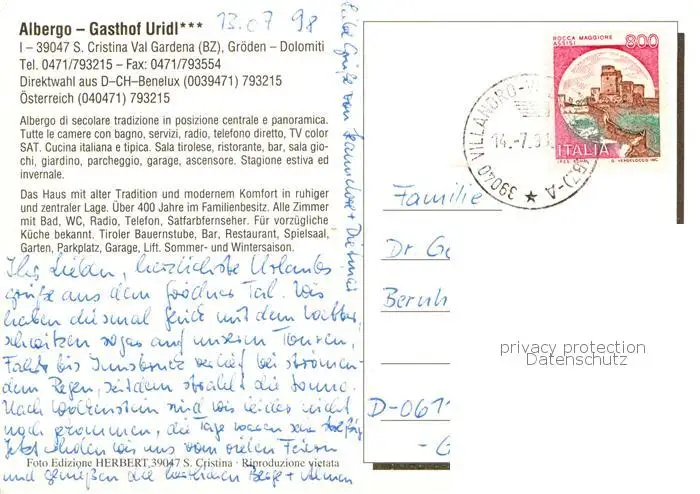 Albergo – Gasthof Uridl***
13.07 98
I – 39047 S. Cristina Val Gardena (BZ), Gröden – Dolomiti
Tel. 0471/793215 – Fax: 0471/793554
Direktwahl aus D-CH-Benelux (0039471) 793215
Österreich (040471) 793215
Albergo di secolare tradizione in posizione centrale e panoramica.
Tutte le camere con bagno, servizi, radio, telefono diretto, TV color
SAT. Cucina italiana e tipica. Sala tirolese, ristorante, bar, sala gio-
chi, giardino, parcheggio, garage, ascensore. Stagione estiva ed
invernale.
Das Haus mit alter Tradition und modernem Komfort in ruhiger
und zentraler Lage. Über 400 Jahre im Familienbesitz. Alle Zimmer
mit Bad, WC, Radio, Telefon, Satfarbfernseher. Für vorzügliche
Küche bekannt. Tiroler Bauernstube, Bar, Restaurant, Spielsaal,
Garten, Parkplatz, Garage, Lift. Sommer- und Wintersaison.
Ihr Lieben, herzlichste Urlaubs
grüße aus dem Grödner Tal. Wir
haben diesmal Glück mit dem Wetter,
schwitzen sogar auf unseren Touren,
Fahrt bis Innsbruck verlief bei strömen-
dem Regen, seitdem strahlt die Sonne.
Nach Wolkenstein sind wir leider nicht
noch gekommen, die Tage waren
Jetzt erholen wir uns vom vielen Feiern
und genießen die herrlichen Berge + Almen
Foto Edizione HERBERT 39047 S. Cristina · Riproduzione vietata
Liebe Grüße von Hannelore + Dietmar
ROCCA MAGGIORE
ASSISI
800
ITALIA
39040 VILLANDRO
(BZ)-A
14.-7.9
Familie
Dr Ge
Bernh
D-061
privacy protection
Datenschutz